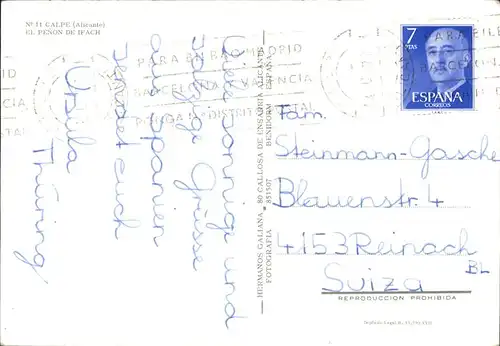 Nº 11 CALPE (Alicante)
EL PEÑON DE IFACH
Viele sonnige und
salzige Grüsse
aus Spanien
sendet euch
Ursula
Thüring
HERMANOS GALIANA, 80 CALLOSA DE ENSARRIA ALICANTE
FOTOGRAFIA 851507 BENIDORM ESPAÑA
PARA BILBAO
BARCELONA VALENCIA
PONGA DISTRITO POSTAL
7
PTAS
ESPAÑA
CORREOS
Fam.
Steinmann-Gasche
Blauenstr. 4
4153 Reinach
BL
Suiza
REPRODUCCION PROHIBIDA